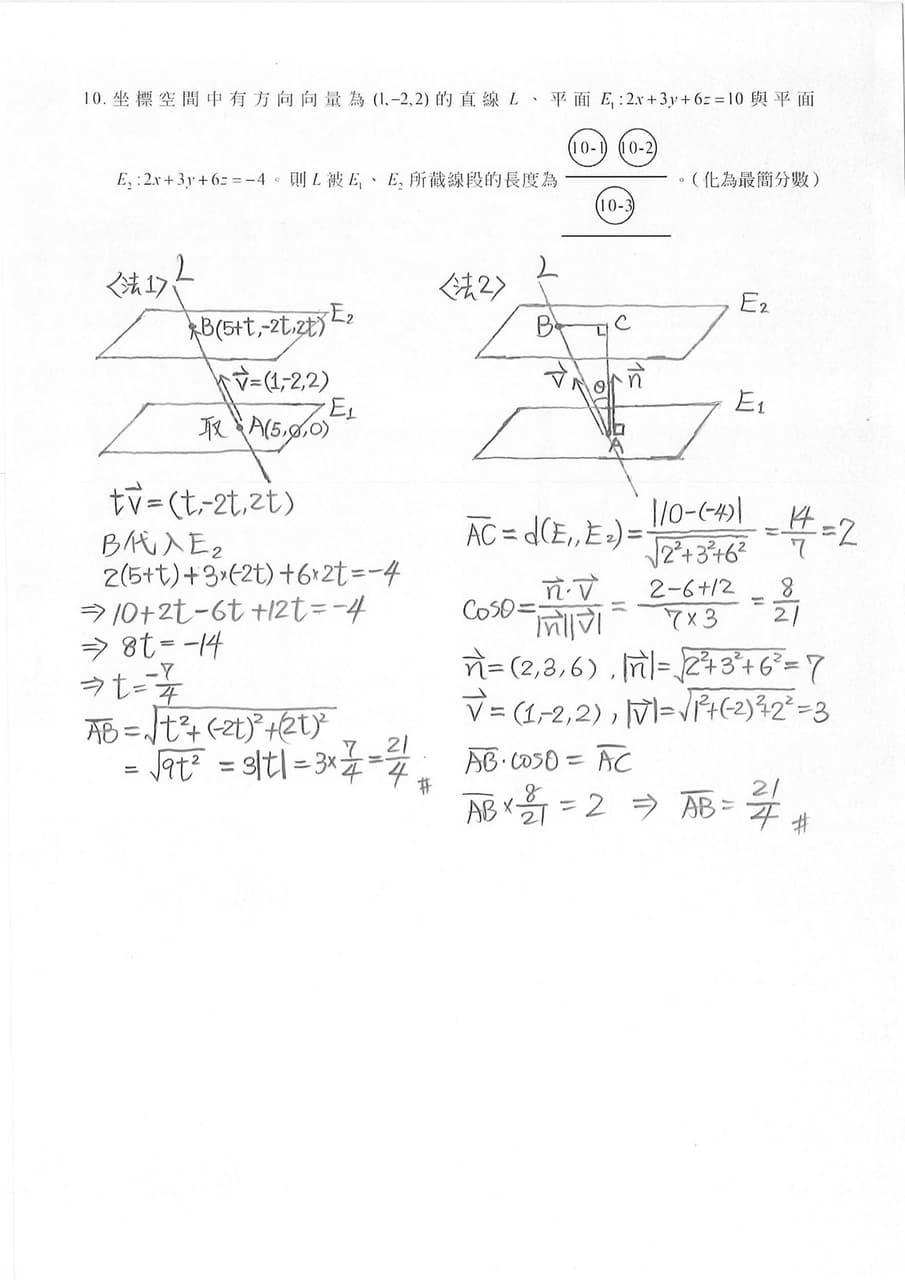 10. 坐標空間中有方向向量為 (1,−2,2) 的直線 L、平面 E₁:2x+3y+6z=10 與平面
(10-1) (10-2)
E₂:2x+3y+6z=−4。則 L 被 E₁、E₂ 所截線段的長度為 。(化為最簡分數)
(10-3)
〈法1〉
L
E₂
B(5+t,-2t,2t)
v⃗=(1,-2,2)
E₁
取 A(5,0,0)
tv⃗=(t,-2t,2t)
B代入E₂
2(5+t)+3×(-2t)+6×2t=-4
⇒10+2t-6t+12t=-4
⇒ 8t=-14
⇒ t=-7/4
AB=√(t²+(-2t)²+(2t)²)
=√9t² =3|t|=3×7/4=21/4 #
〈法2〉
L
E₂
B C
v⃗ θ n⃗
E₁
A
AC=d(E₁,E₂)=|10-(-4)|/√(2²+3²+6²)=14/7=2
cosθ=n⃗·v⃗/|n⃗||v⃗|=2-6+12/7×3=8/21
n⃗=(2,3,6),|n⃗|=√(2²+3²+6²)=7
v⃗=(1,-2,2),|v⃗|=√(1²+(-2)²+2²)=3
AB·cosθ=AC
AB×8/21=2 ⇒ AB=21/4 #